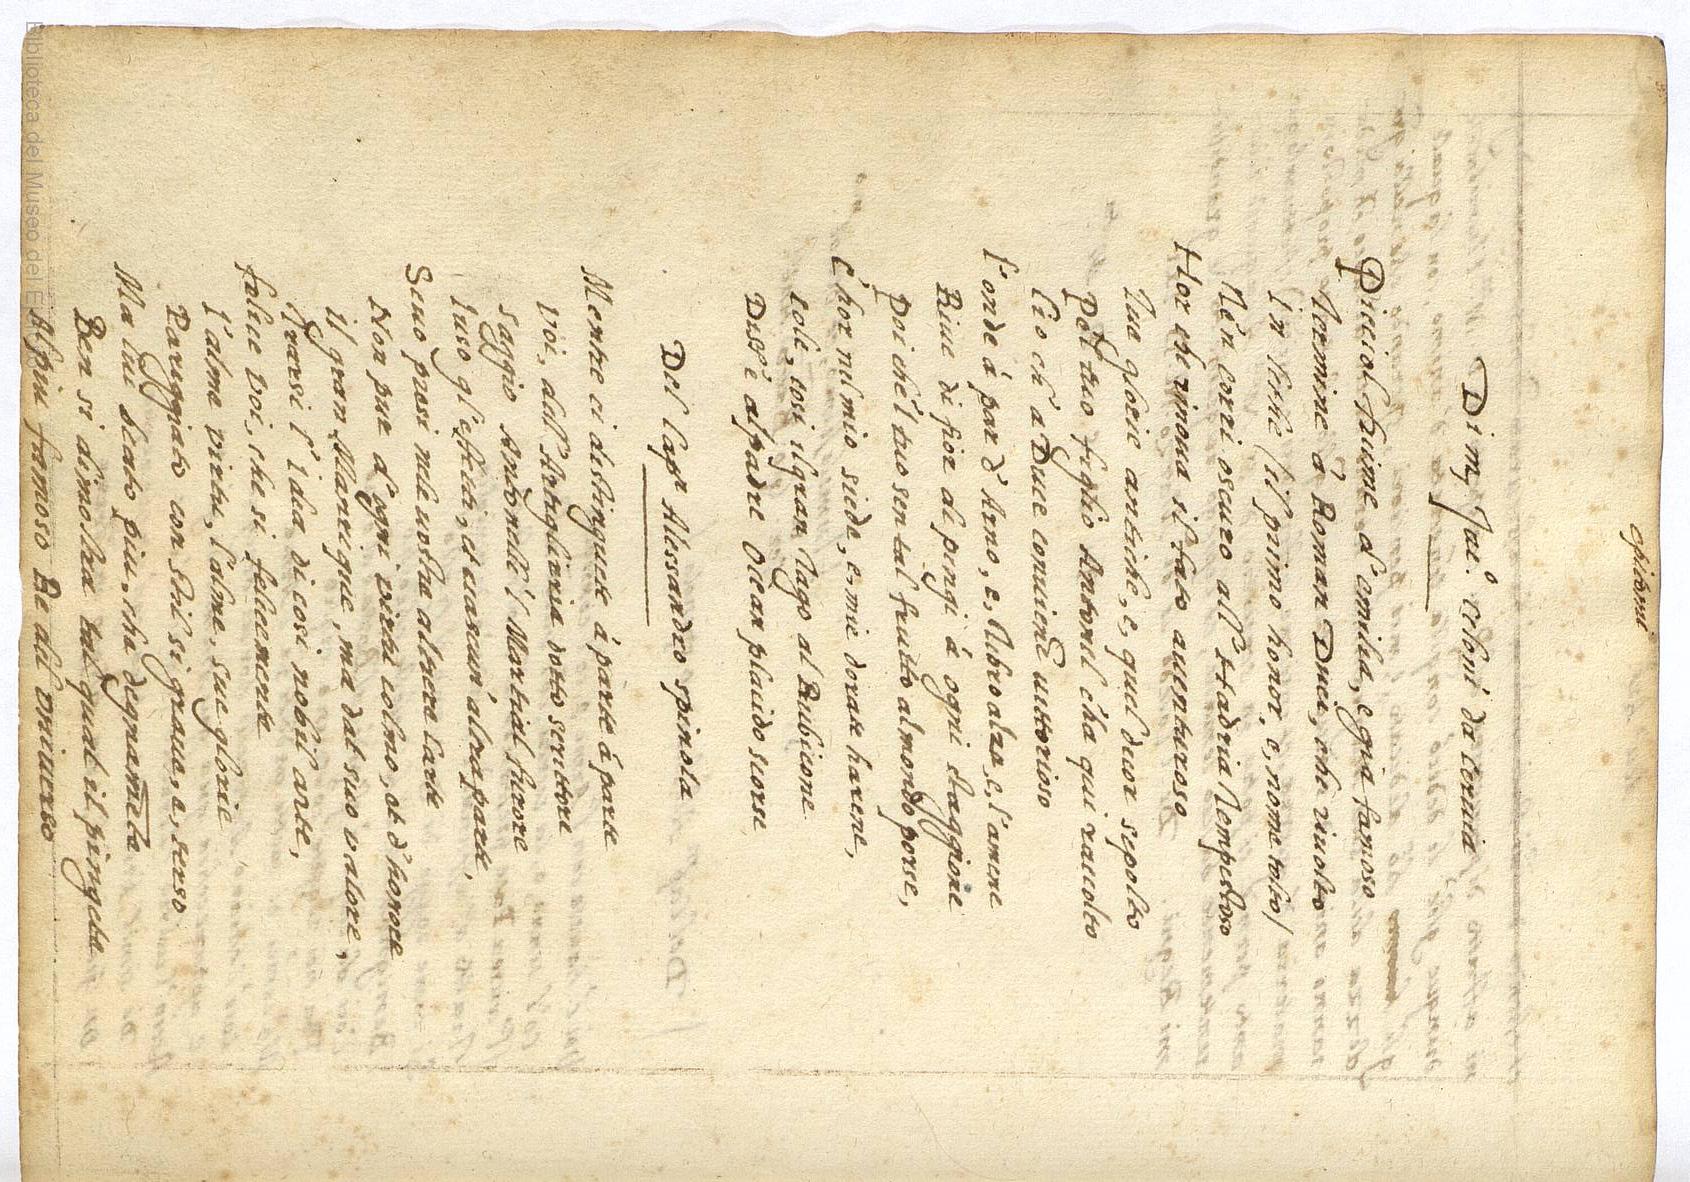 cibonj
Di m. Jac.º ciboni da coruia
Picciol fiume d'emilia, e gia famoso
Termine a Roman Duci, che riuolto
In Serchio (il primo honor, e, nome tolto)
T'en corri oscuro all'Hadria tempestoso
Hor che rinoua il fato auenturoso
Tue glorie antiche, e, quel duor sepolto
Pel tuo figlio Antonel c'ha qui raccolto
Cio ch'a Duce conuiene uittorioso
l'onde á par d'Arno, e, Tebro alza, e, l'amene
Riue di fior dipingi á ogni staggione
Poi che'l tuo sen tal frutto al mondo porse,
C'hor nel mio siede, e, mie dorate harene,
cole, cosi il gran Tago al Rubicone
Disse e al padre Ocean placido scorse
Del Capº Alessandro spinola
Mentre ci distinguete á parte á parte
Voi, dell'Artegliaria dotto scrittore
saggio Antonelli 'l Martial furore
l'uso gl'effetti, et ciascun'altra parte,
Scuo presi nele uostre altiere carte
Non pur d'ogni virtù colmo, et d'honore
il gran Manrique, ma dal suo valore,
trarsi l'idea di cosi nobil arte,
felice voi, che si felicemente
l'alme virtù, l'alme, sue glorie
Pareggiato con stil si graue, e, terso
Ma lui beato piu, che degnamente
Ben si dimostra tal qual il pingete
Al piu famoso Re del vniuerso
Biblioteca del Museo del E